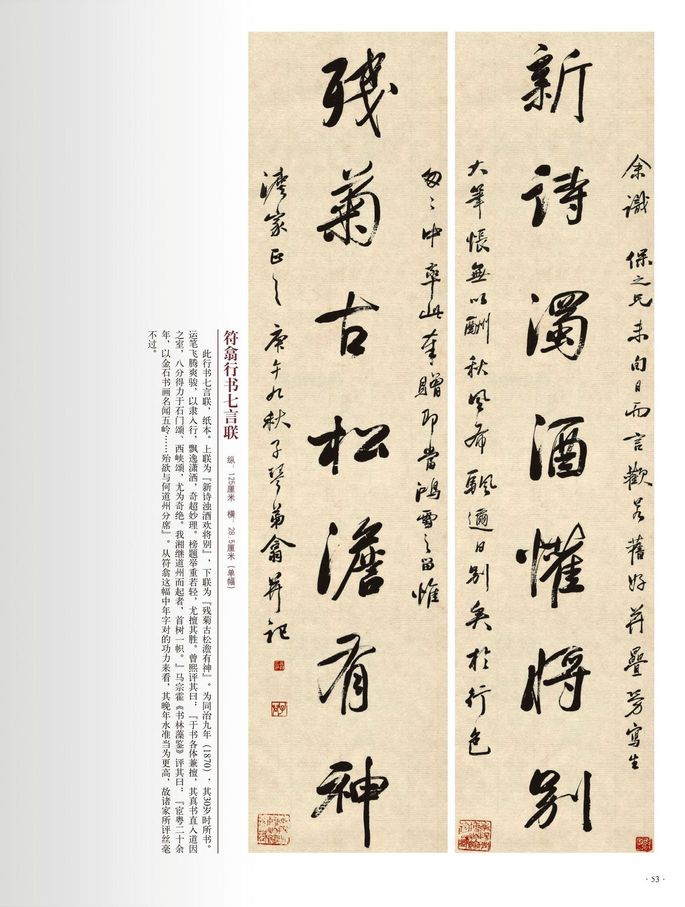 新诗濁酒懽将别
余识保之兄未向日而言歡若舊好并疊荡寫生
大筆悵無以酬秋風布颿適日别矣於行色
残菊古松澹有神
匆々中率此奉贈即當鴻雪之留惟
濤家正之庚午九秋子琴弟翕并记
符翕行书七言联
纵：125厘米 横：28.5厘米（单幅）
此行书七言联，纸本。上联为『新诗浊酒欢将别』，下联为『残菊古松澹有神』。为同治九年（1870），其30岁时所书。
运笔飞腾爽骏，以隶入行，飘逸潇洒，奇超妙理。榜题举重若轻，尤擅其胜。曾熙评其曰：『于书各体兼擅，其真书直入道因
之室，八分得力于石门颂、西峡颂，尤为奇绝。我湘继道州而起者，首树一帜。』马宗霍《书林藻鉴》评其曰：『宦粤二十余
年，以金石书画名闻五岭……殆欲与何道州分席』。从符翕这幅中年字对的功力来看，其晚年水准当为更高，故诸家所评丝毫
不过。
· 53 ·